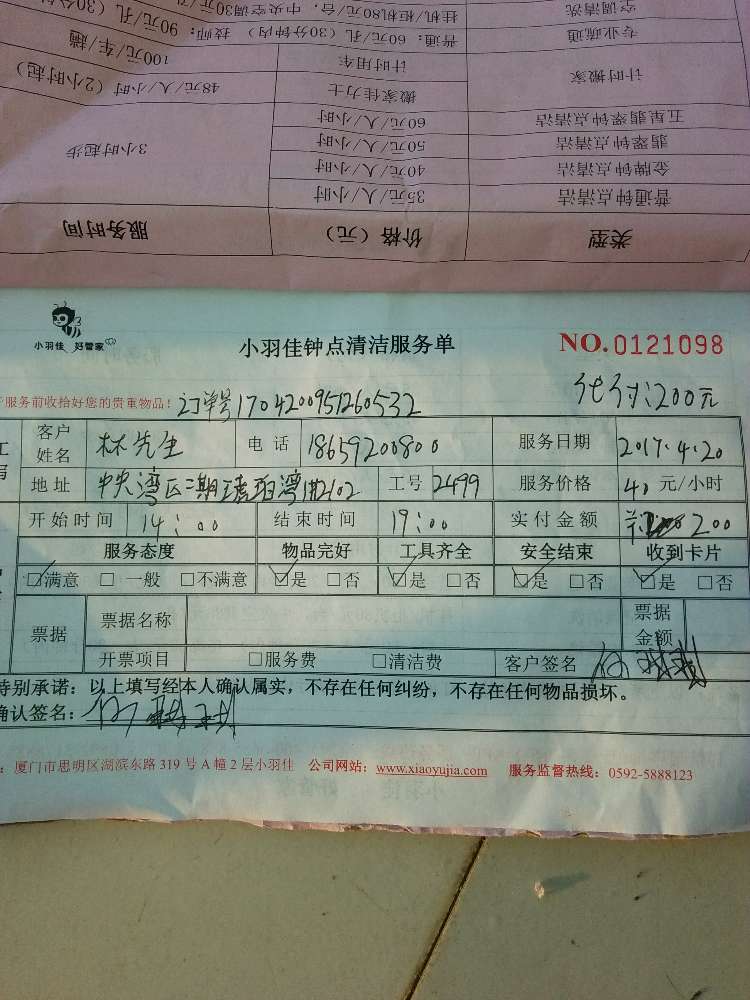 挂机/柜机80元/台，中央空调30元/孔
空调清洗
普通：60元/孔（30分钟内） 技师：90元/孔（30分钟
专业疏通
100元/车/趟 计时用车
计时搬家
48元/人/小时（2小时起） 搬家佳力士
60元/人/小时 五星翡翠钟点清洁
50元/人/小时 翡翠钟点清洁
3小时起步 40元/人/小时 金牌钟点清洁
35元/人/小时 普通钟点清洁
服务时间 价格（元） 类型
小羽佳 好管家
小羽佳钟点清洁服务单 NO.0121098
服务前收拾好您的贵重物品！ 订单号1704200951260532 代付：200元
客户姓名 林先生 电话 18659200800 服务日期 2017.4.20
地址 中央湾区二期琥珀湾 2102 工号 2499 服务价格 40 元/小时
开始时间 14：00 结束时间 19：00 实付金额 200
服务态度 物品完好 工具齐全 安全结束 收到卡片
☑满意 □一般 □不满意 ☑是 □否 ☑是 □否 ☑是 □否 ☑是 □否
票据 票据名称 票据金额
开票项目 □服务费 □清洁费 客户签名
特别承诺：以上填写经本人确认属实，不存在任何纠纷，不存在任何物品损坏。
确认签名：
：厦门市思明区湖滨东路319号A幢2层小羽佳 公司网站：www.xiaoyujia.com 服务监督热线：0592-5888123